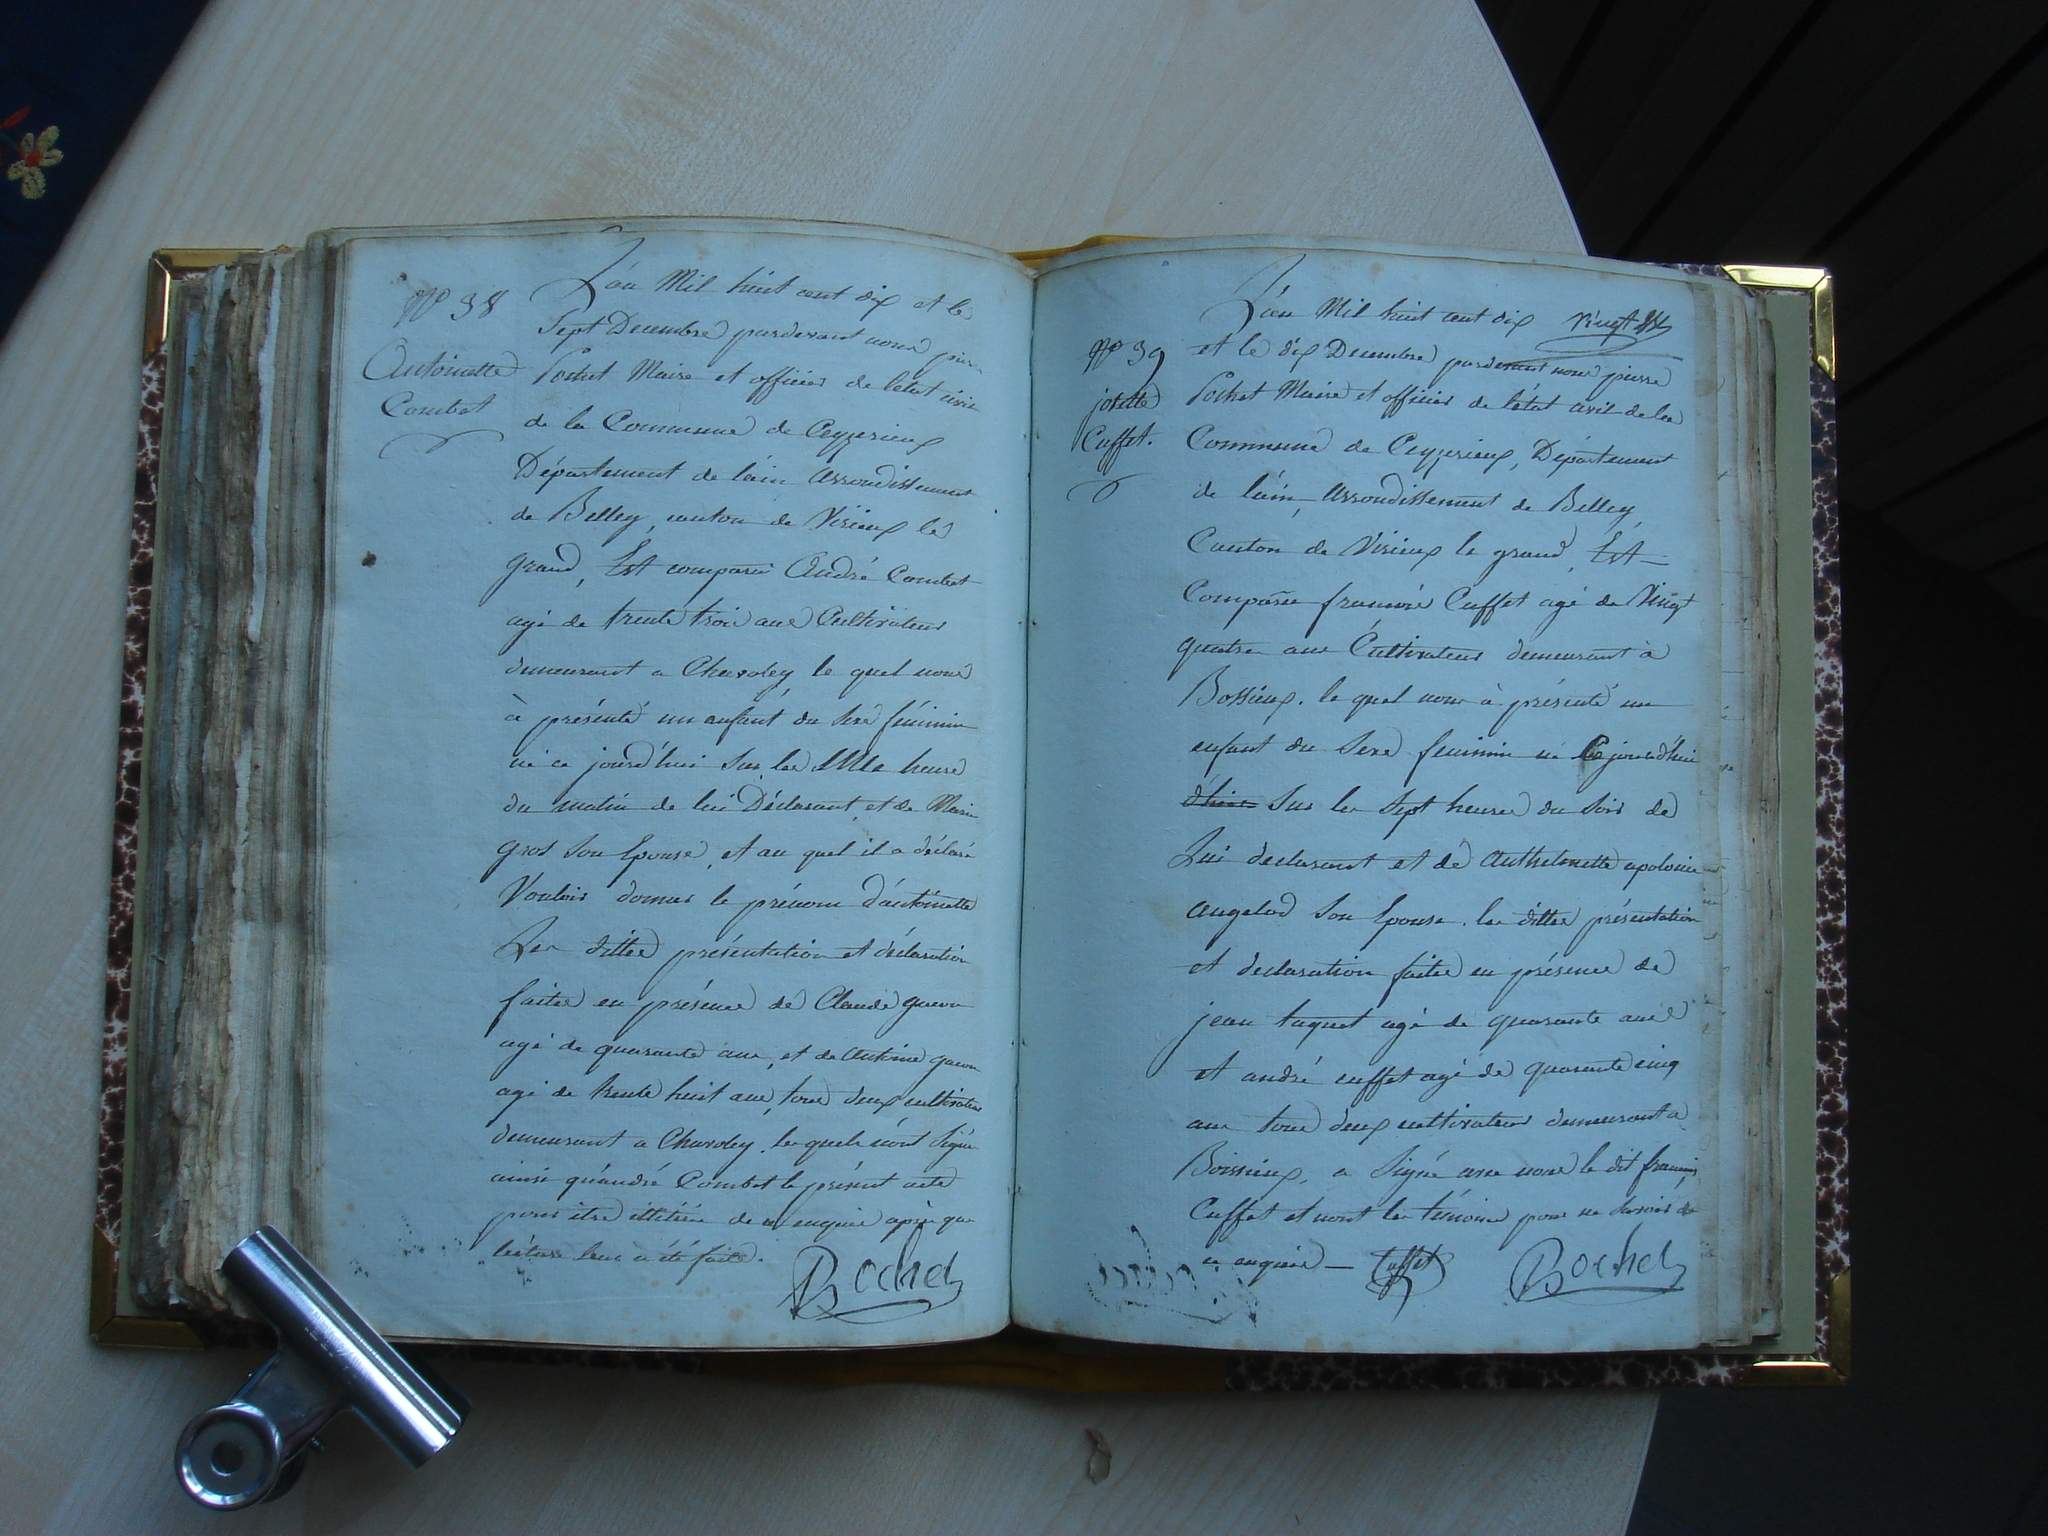 N° 38
Antoinette
Combet
L'an Mil huit cent dix et le
Sept Decembre pardevant nous pier-
Pochet Maire et officier de l'état civil
de la Commune de Ceyzerieux
Département de l'ain Arrondissement
de Belley, canton de Virieux le
grand, Est comparu André Combet
agé de trente trois ans Cultivateur
demeurant a Chavoley le quel nous
à présenté un enfant du Sexe féminin
né ce jourd'hui Sur les heures
du matin de lui Déclarant, et de Marie
gros Son Epouse, et au quel il a déclaré
Vouloir donner le prénom d'antoinette
Les dittes présentation et déclaration
faites en présence de Claude
agé de quarante ans, et de Antoine
agé de trente huit ans, tous deux cultivateurs
demeurant a Chavoley. les quels n'ont Signé
ainsi qu'andré Combet le présent acte
pour être de ce enquis après que
lecture leur a été faite.
Bochet
vingt
N° 39
josette
Cuffet.
L'an Mil huit cent dix
et le dix Decembre pardevant nous pierre
Pochet Maire et officier de l'état civil de la
Commune de Ceyzerieux, Département
de l'ain, Arrondissement de Belley,
Canton de Virieux le grand, Est
Comparu francois Cuffet agé de Vingt
quatre ans Cultivateur demeurant à
Bossieux. le quel nous à présenté un
enfant du Sexe feminin né Cejourd'hui
d'hui Sur les Sept heures du Soir de
Lui declarant et de Anthelmette apolonie
Angelod Son Epouse. les dittes présentation
et declaration faites en présence de
jean taquet agé de quarante ans
et andré cuffet agé de quarante cinq
ans tous deux cultivateurs demeurant a
Boissieux, a Signé avec nous le dit francois
Cuffet et non les témoins pour ne Savoir de
ce enquis — Cuffet
Bochet